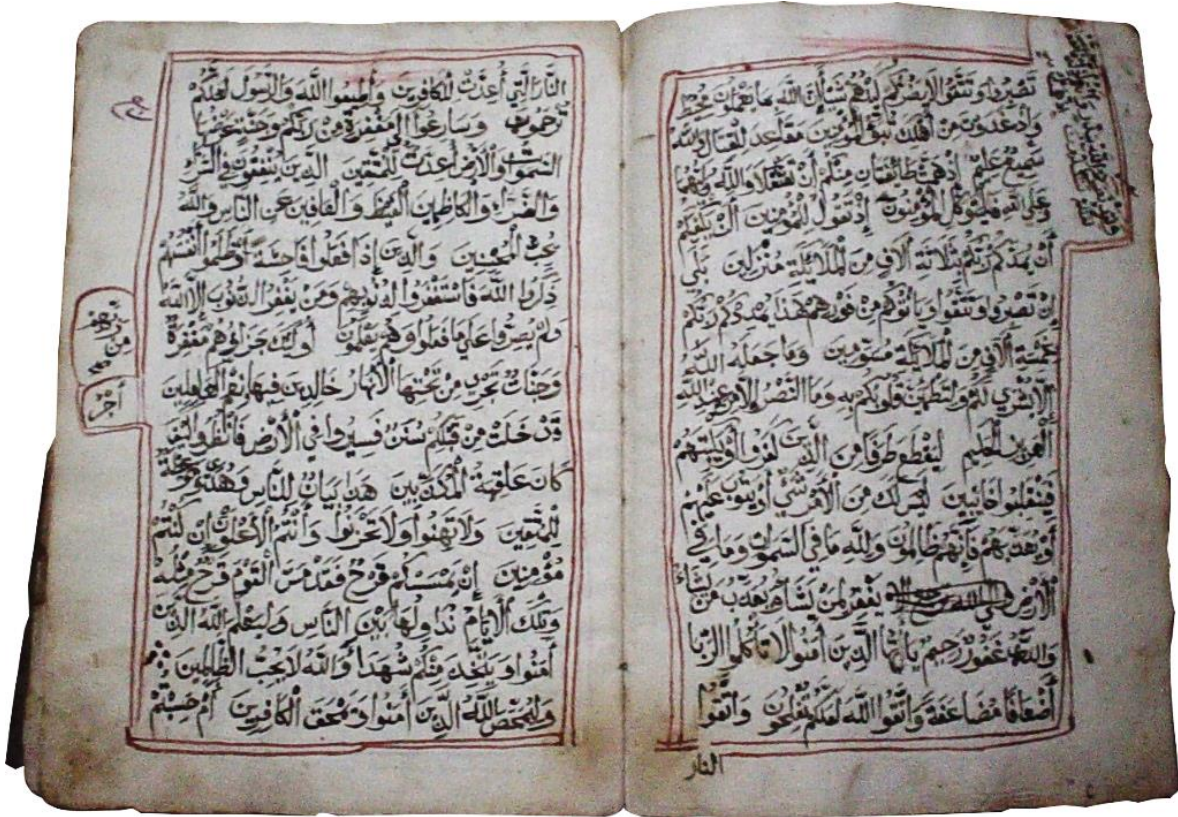 تصبروا وتتقوا لا يضركم كيدهم شيئا إن الله بما تعملون محيط
وإذ غدوت من أهلك تبوئ المؤمنين مقاعد للقتال والله
سميع عليم إذ همت طائفتان منكم أن تفشلا والله وليهما
وعلى الله فليتوكل المؤمنون إذ تقول للمؤمنين ألن يكفيكم
أن يمدكم ربكم بثلاثة آلاف من الملائكة منزلين بلى
إن تصبروا وتتقوا ويأتوكم من فورهم هذا يمددكم ربكم
بخمسة آلاف من الملائكة مسومين وما جعله الله
إلا بشرى لكم ولتطمئن قلوبكم به وما النصر إلا من عند الله
العزيز الحكيم ليقطع طرفا من الذين كفروا أو يكبتهم
فينقلبوا خائبين ليس لك من الأمر شيء أو يتوب عليهم
أو يعذبهم فإنهم ظالمون ولله ما في السموات وما في
الأرض يغفر لمن يشاء ويعذب من يشاء
والله غفور رحيم يا أيها الذين آمنوا لا تأكلوا الربا
أضعافا مضاعفة واتقوا الله لعلكم تفلحون واتقوا
النار
النار التي أعدت للكافرين وأطيعوا الله والرسول لعلكم
ترحمون وسارعوا إلى مغفرة من ربكم وجنة عرضها
السموات والأرض أعدت للمتقين الذين ينفقون في السراء
والضراء والكاظمين الغيظ والعافين عن الناس والله
يحب المحسنين والذين إذا فعلوا فاحشة أو ظلموا أنفسهم
ذكروا الله فاستغفروا لذنوبهم ومن يغفر الذنوب إلا الله
ولم يصروا على ما فعلوا وهم يعلمون أولئك جزاؤهم مغفرة
من ربهم
وجنات تجري من تحتها الأنهار خالدين فيها نعم العاملين
أجر
قد خلت من قبلكم سنن فسيروا في الأرض فانظروا كيف
كان عاقبة المكذبين هذا بيان للناس وهدى وموعظة
للمتقين ولا تهنوا ولا تحزنوا وأنتم الأعلون إن كنتم
مؤمنين إن يمسسكم قرح فقد مس القوم قرح مثله
وتلك الأيام نداولها بين الناس وليعلم الله الذين
آمنوا ويتخذ منكم شهداء والله لا يحب الظالمين
وليمحص الله الذين آمنوا ويمحق الكافرين أم حسبتم